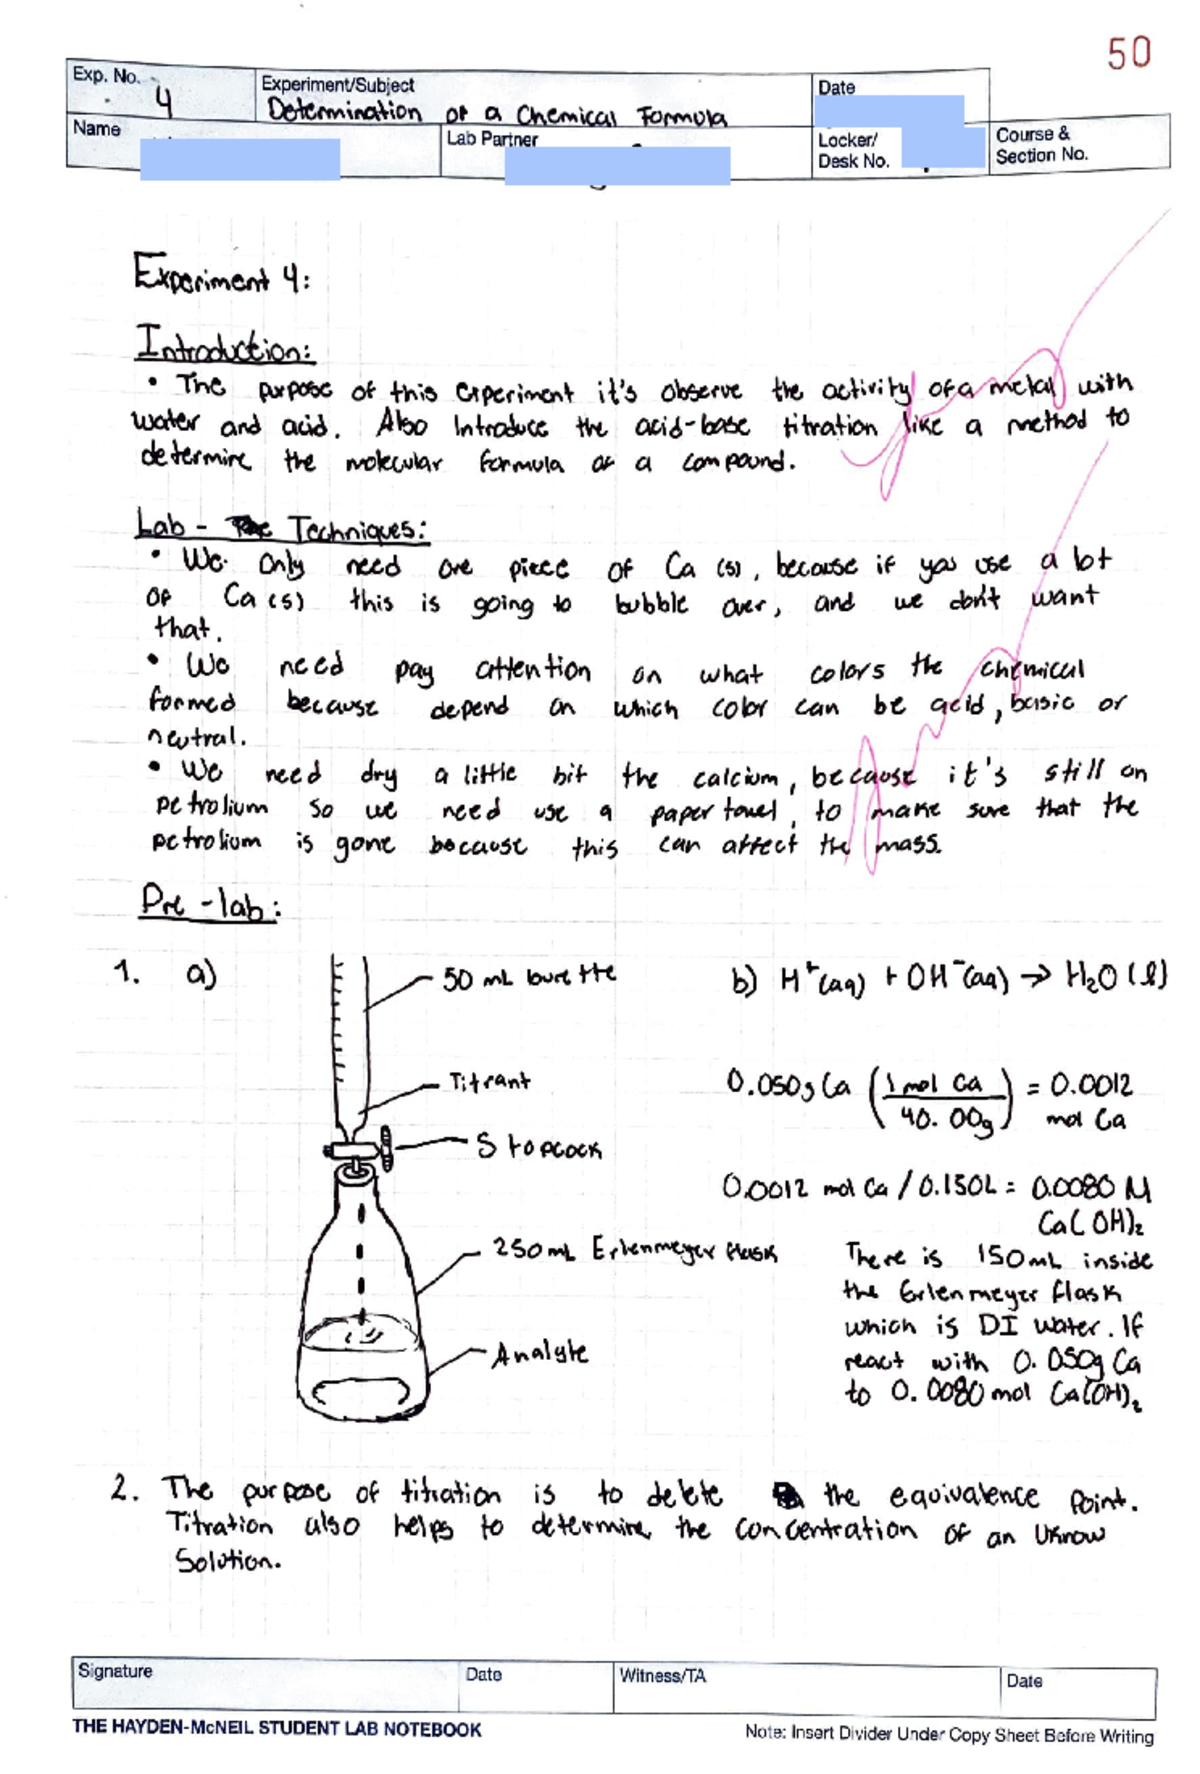 50
Exp. No.
4
Experiment/Subject
Determination of a Chemical Formula
Date
Name
Lab Partner
Locker/
Desk No.
Course &
Section No.
Experiment 4:
Introduction:
• The purpose of this experiment it's observe the activity of a metal with
water and acid. Also Introduce the acid-base titration like a method to
determine the molecular formula of a compound.
Lab - The Techniques:
• We Only need one piece of Ca (s), because if you use a lot
of Ca (s) this is going to bubble over, and we don't want
that.
• We need pay attention on what colors the chemical
formed because depend on which color can be acid, basic or
neutral.
• We need dry a little bit the calcium, because it's still on
petrolium so we need use a paper towel, to make sure that the
petrolium is gone because this can affect the mass.
Pre-lab:
1. a)
50 mL burette
Titrant
Stopcock
250mL Erlenmeyer flask
Analyte
b) H⁺(aq) + OH⁻(aq) → H₂O (l)
0.050g Ca (1 mol Ca / 40.00g) = 0.0012
mol Ca
0.0012 mol Ca / 0.150L = 0.0080 M
Ca(OH)₂
There is 150mL inside
the Erlenmeyer flask
which is DI water. If
react with 0.050g Ca
to 0.0080 mol Ca(OH)₂
2. The purpose of titration is to delete the equivalence point.
Titration also helps to determine the concentration of an Uknow
Solution.
Signature
Date
Witness/TA
Date
THE HAYDEN-McNEIL STUDENT LAB NOTEBOOK
Note: Insert Divider Under Copy Sheet Before Writing